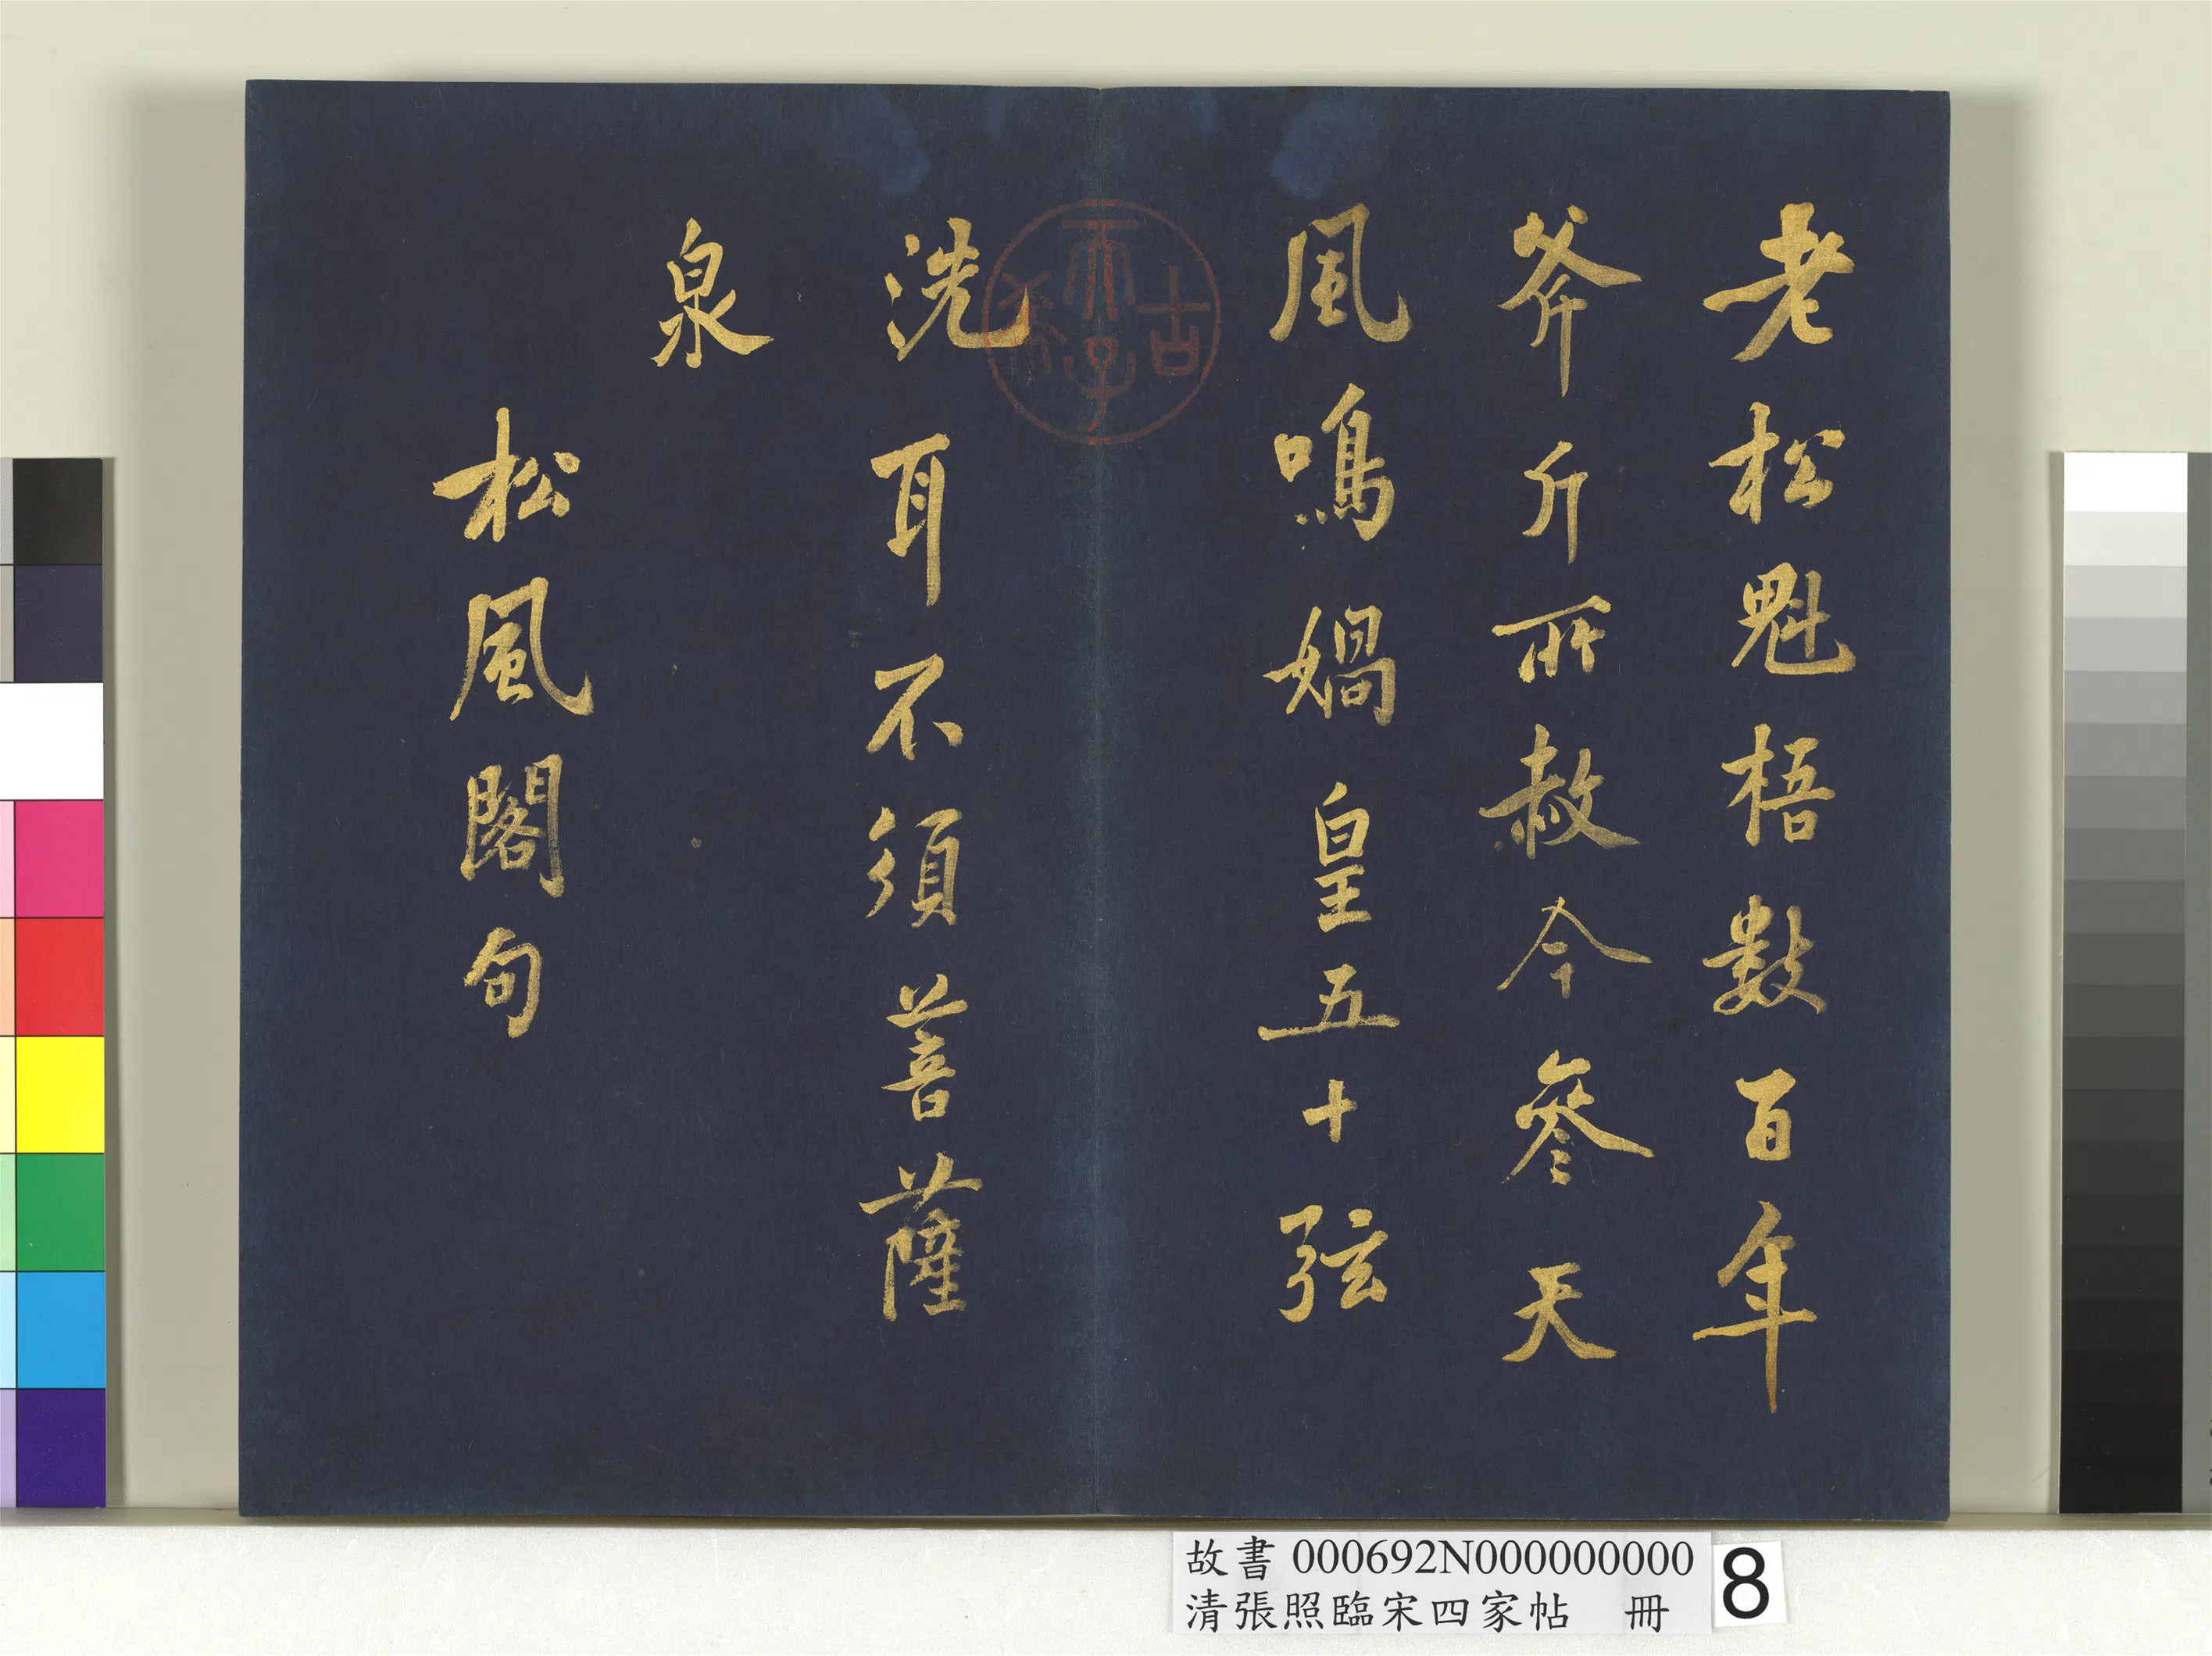 老松魁梧數百年
斧斤所赦今參天
風鳴媧皇五十弦
洗耳不須菩薩
泉
松風閣句
古希天子
故書 000692N000000000
清張照臨宋四家帖 冊
8